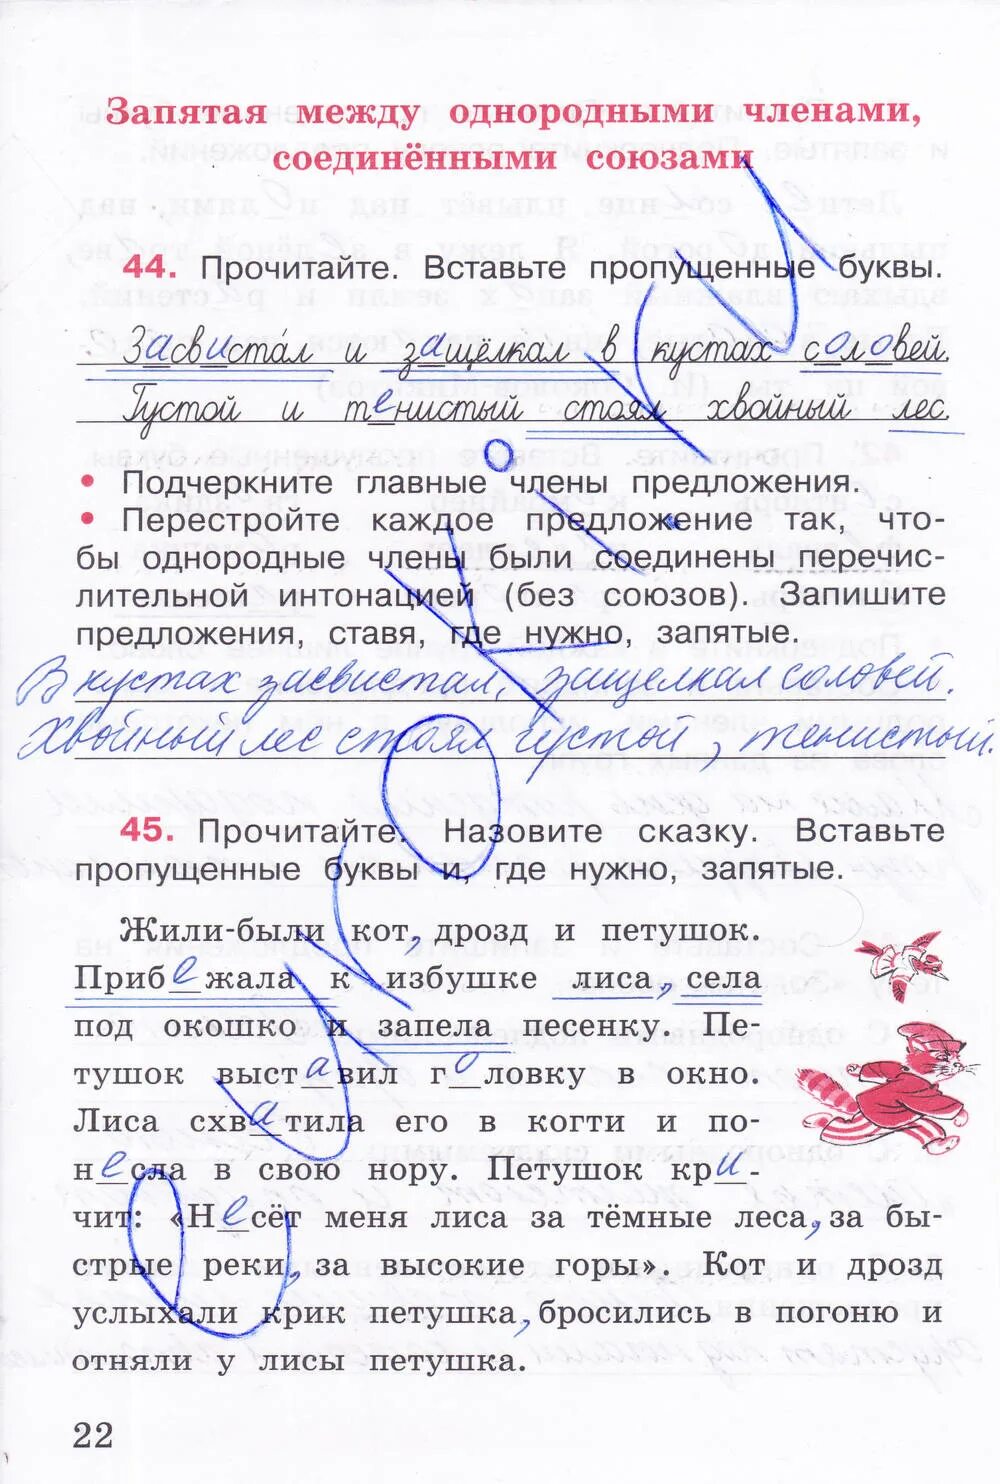 Запятая между однородными членами,
соединёнными союзами
44. Прочитайте. Вставьте пропущенные буквы.
Засвистал и защёлкал в кустах соловей.
Густой и тенистый стоял хвойный лес.
• Подчеркните главные члены предложения.
• Перестройте каждое предложение так, что-
бы однородные члены были соединены перечис-
лительной интонацией (без союзов). Запишите
предложения, ставя, где нужно, запятые.
В кустах засвистал, защелкал соловей.
Хвойный лес стоял густой, тенистый.
45. Прочитайте. Назовите сказку. Вставьте
пропущенные буквы и, где нужно, запятые.
Жили-были кот, дрозд и петушок.
Прибежала к избушке лиса, села
под окошко и запела песенку. Пе-
тушок выставил головку в окно.
Лиса схватила его в когти и по-
несла в свою нору. Петушок кри-
чит: «Несёт меня лиса за тёмные леса, за бы-
стрые реки, за высокие горы». Кот и дрозд
услыхали крик петушка, бросились в погоню и
отняли у лисы петушка.
22